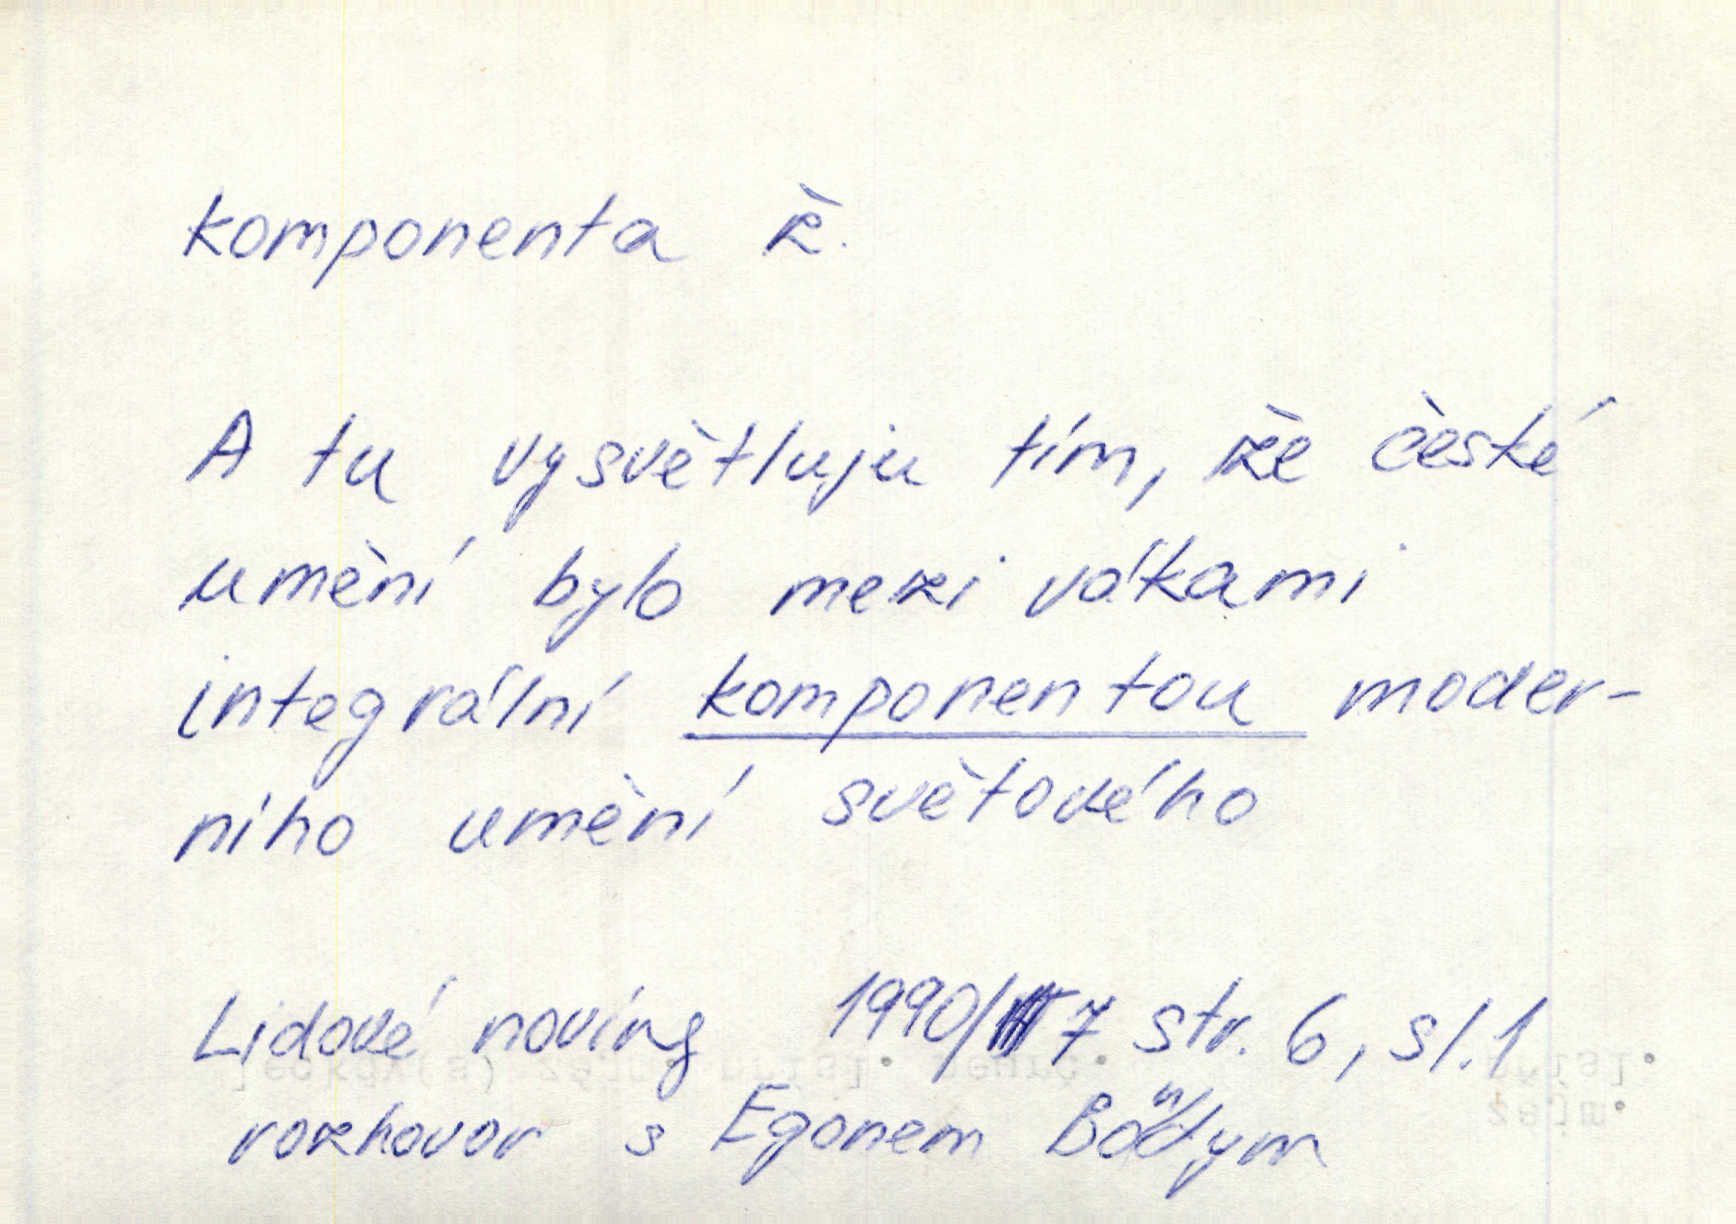 komponenta ž.
A tu vysvětluju tím, že české
umění bylo mezi válkami
integrální komponentou moder-
ního umění světového
Lidové noviny 1990/7 str. 6, sl. 1
rozhovor s Egonem